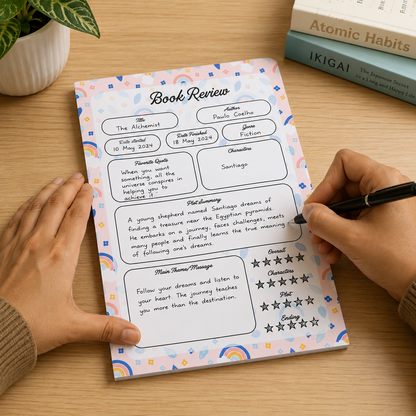 Atomic Habits
IKIGAI
Book Review
Title
The Alchemist
Author
Paulo Coelho
Date Started
10 May 2024
Date Finished
18 May 2024
Genre
Fiction
Favorite Quote
When you want
something, all the
universe conspires in
helping you to
achieve it.
Characters
Santiago
Plot Summary
A young shepherd named Santiago dreams of
finding a treasure near the Egyptian pyramids.
He embarks on a journey, faces challenges, meets
many people and finally learns the true meaning
of following one's dreams.
Main Theme/Message
Follow your dreams and listen to
your heart. The journey teaches
you more than the destination.
Overall
Characters
Plot
Ending